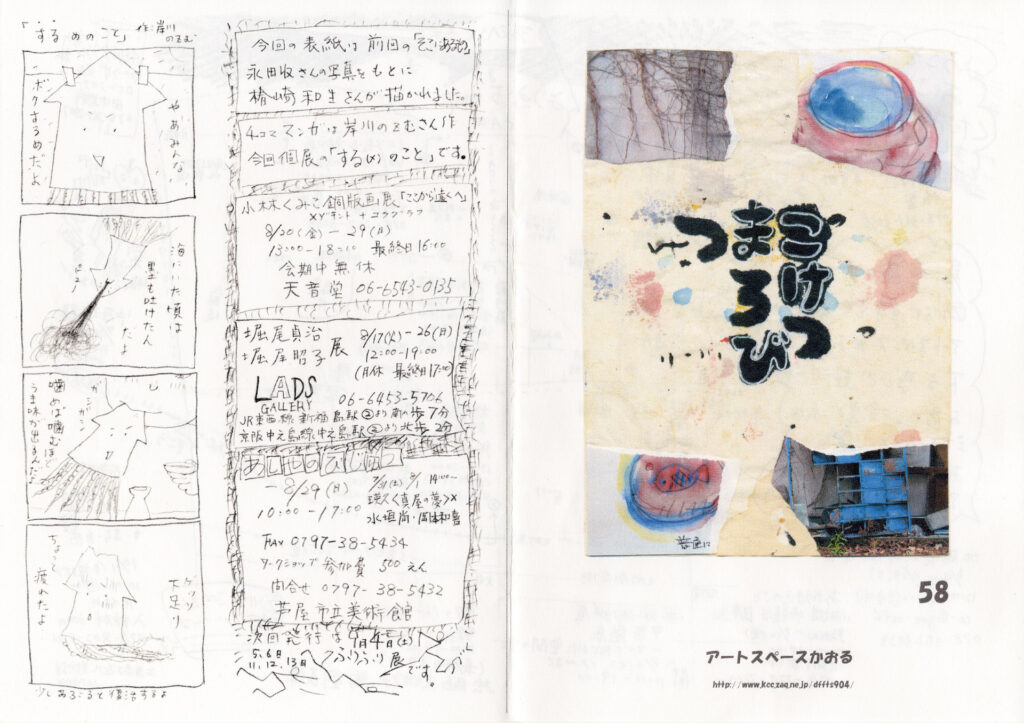 「するめのこと」
作:岸川のぞむ
やあみんな
ボクするめだよ
海にいた頃は
墨も吐けたんだよ
ピュー
噛めば噛むほど
うま味が出るんだよ
ゲソリ
下足り
ちょっと
疲れたよ
少しあぶると復活するよ
今回の表紙は前回の「そこにあるもの」
永田收さんの写真をもとに
楢崎和生さんが描かれました。
4コママンガは岸川のぞむさん作
今回個展の「するめのこと」です。
小林くみこ銅版画展「ここから遠くへ」
メゾチント + コラグラフ
8/20(金) — 29(日)
13:00 - 18:00 最終日16:00
会期中無休
天音堂 06-6543-0135
堀尾貞治
堀尾昭子 展
8/17(火) - 26(日)
12:00-19:00
(月休 最終日17:00)
LADS
GALLERY
06-6453-5706
JR東西線 新福島駅②より南へ歩7分
京阪中之島線 中之島駅②より北歩2分
— 8/29(日)
10:00 - 17:00
水垣尚・岡本和喜
FAX 0797-38-5434
ワークショップ 参加費 500えん
問合せ 0797-38-5432
芦屋市立美術館
次回発行は9月4日(土)
5.6日
11.12.13日
ふりふり展
です。
ごけつ
まろび
つ
58
アートスペースかおる
http://www.kcc.zaq.ne.jp/dffts904/